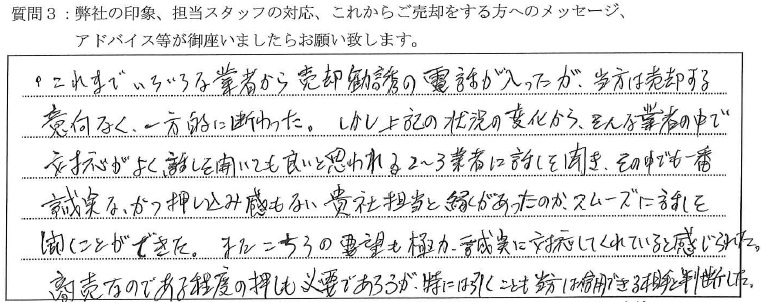 質問3：弊社の印象、担当スタッフの対応、これからご売却をする方へのメッセージ、
アドバイス等が御座いましたらお願い致します。
・これまでいろいろな業者から売却勧誘の電話が入ったが、当方は売却する
意向なく、一方的に断わった。しかし上記の状況の変化から、そんな業者の中で
対応がよく話しを聞いても良いと思われる2～3業者に話しを聞き、その中でも一番
誠実な、かつ押し込み感もない貴社担当と縁があったのか、スムーズに話しを
聞くことができた。またこちらの要望も極力、誠実に対応してくれていると感じられた。
商売なのである程度の押しも必要であろうが、時には引くことも当方は信用できる相手と判断した。